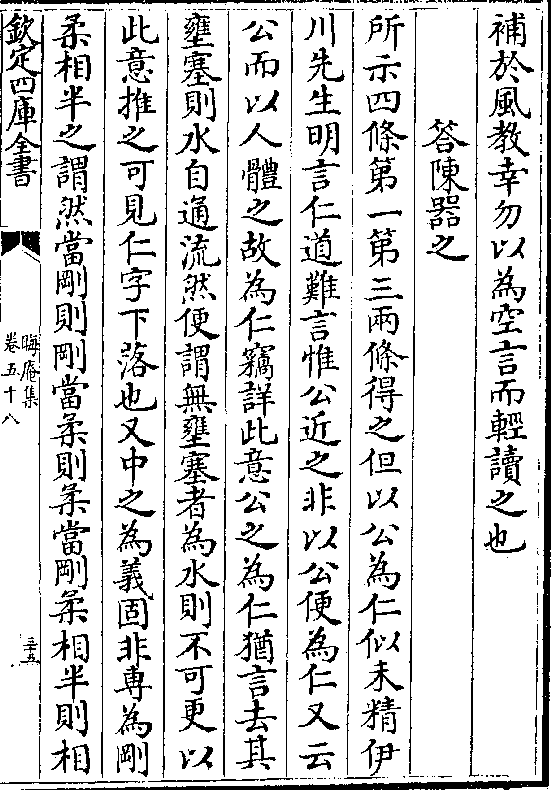 補於風教幸勿以為空言而輕讀之也
答陳器之
所示四條第一第三兩條得之但以公為仁似未精伊
川先生明言仁道難言惟公近之非以公便為仁又云
公而以人體之故為仁竊詳此意公之為仁猶言去其
壅塞則水自通流然便謂無壅塞者為水則不可更以
此意推之可見仁字下落也又中之為義固非專為剛
柔相半之謂然當剛則剛當柔則柔當剛柔相半則相
欽定四庫全書
晦庵集
卷五十八
三十五